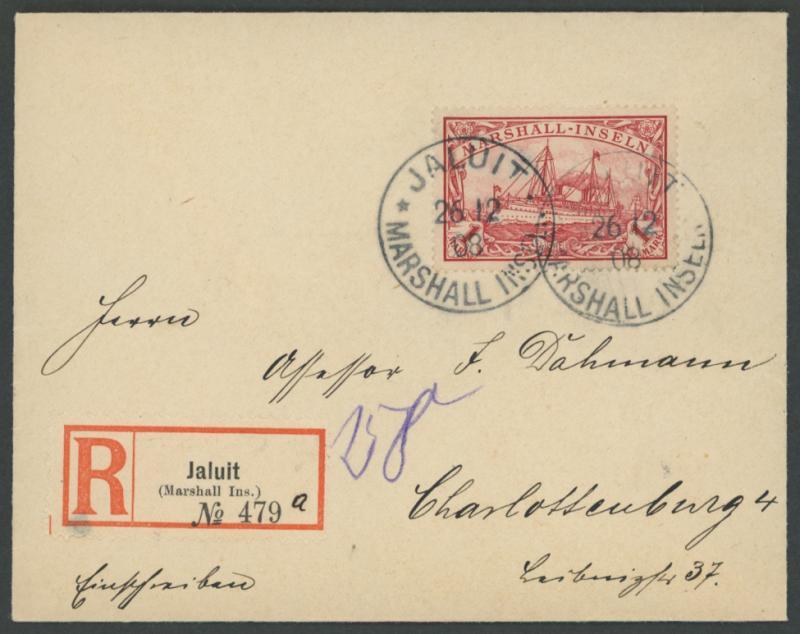 MARSHALL-INSELN
1 1
MARK MARK
JALUIT
26.12
08
MARSHALL INSELN
26.12
08
MARSHALL INSELN
Herrn
Assessor F. Dahmann
R
Jaluit
(Marshall Ins.)
№ 479 a
Charlottenburg 4
Einschreiben
Leibnizstr 37.